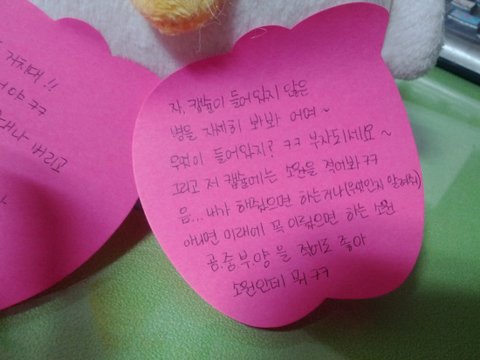 거치대 !!
어야 ㅋㅋ
자, 캡슐이 들어있지 않은
병을 자세히 봐봐 어때 ~
무엇이 들어있지? ㅋㅋ 부자되세요 ~
그리고 저 캡슐에는 소원을 적어봐 ㅋㅋ
음... 내가 해줬으면 하는거나
아니면 미래에 꼭 이뤘으면 하는 소원
공중부양을 적어도 좋아
소원인데 뭐 ㅋㅋ